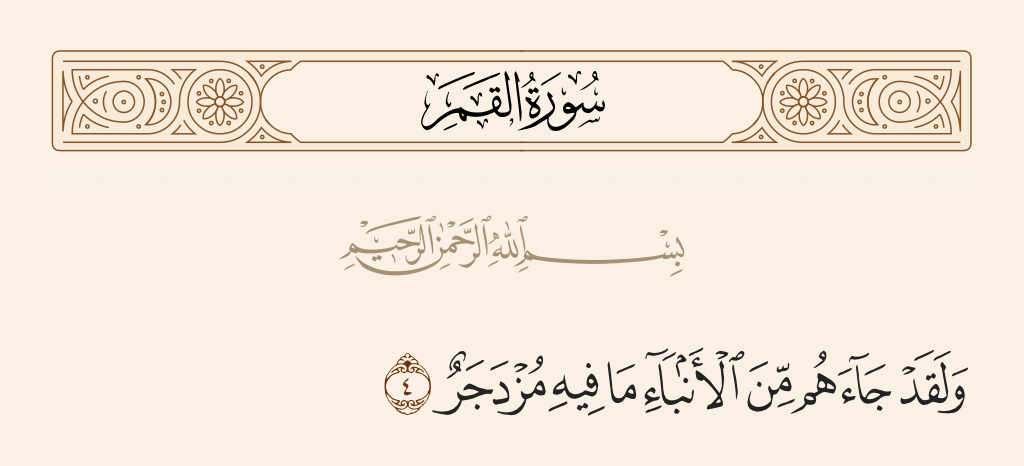 سُورَةُ القَمَرِ
بِسْمِ ٱللَّهِ ٱلرَّحْمَٰنِ ٱلرَّحِيمِ
وَلَقَدْ جَآءَهُم مِّنَ ٱلْأَنۢبَآءِ مَا فِيهِ مُزْدَجَرٌ ٤